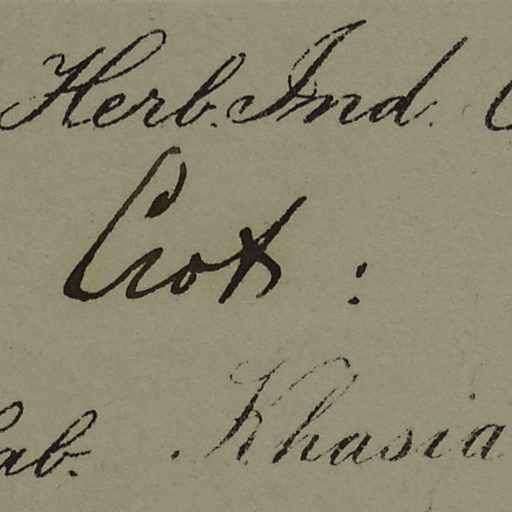 Herb. Ind.
Crot :
Hab. Khasia